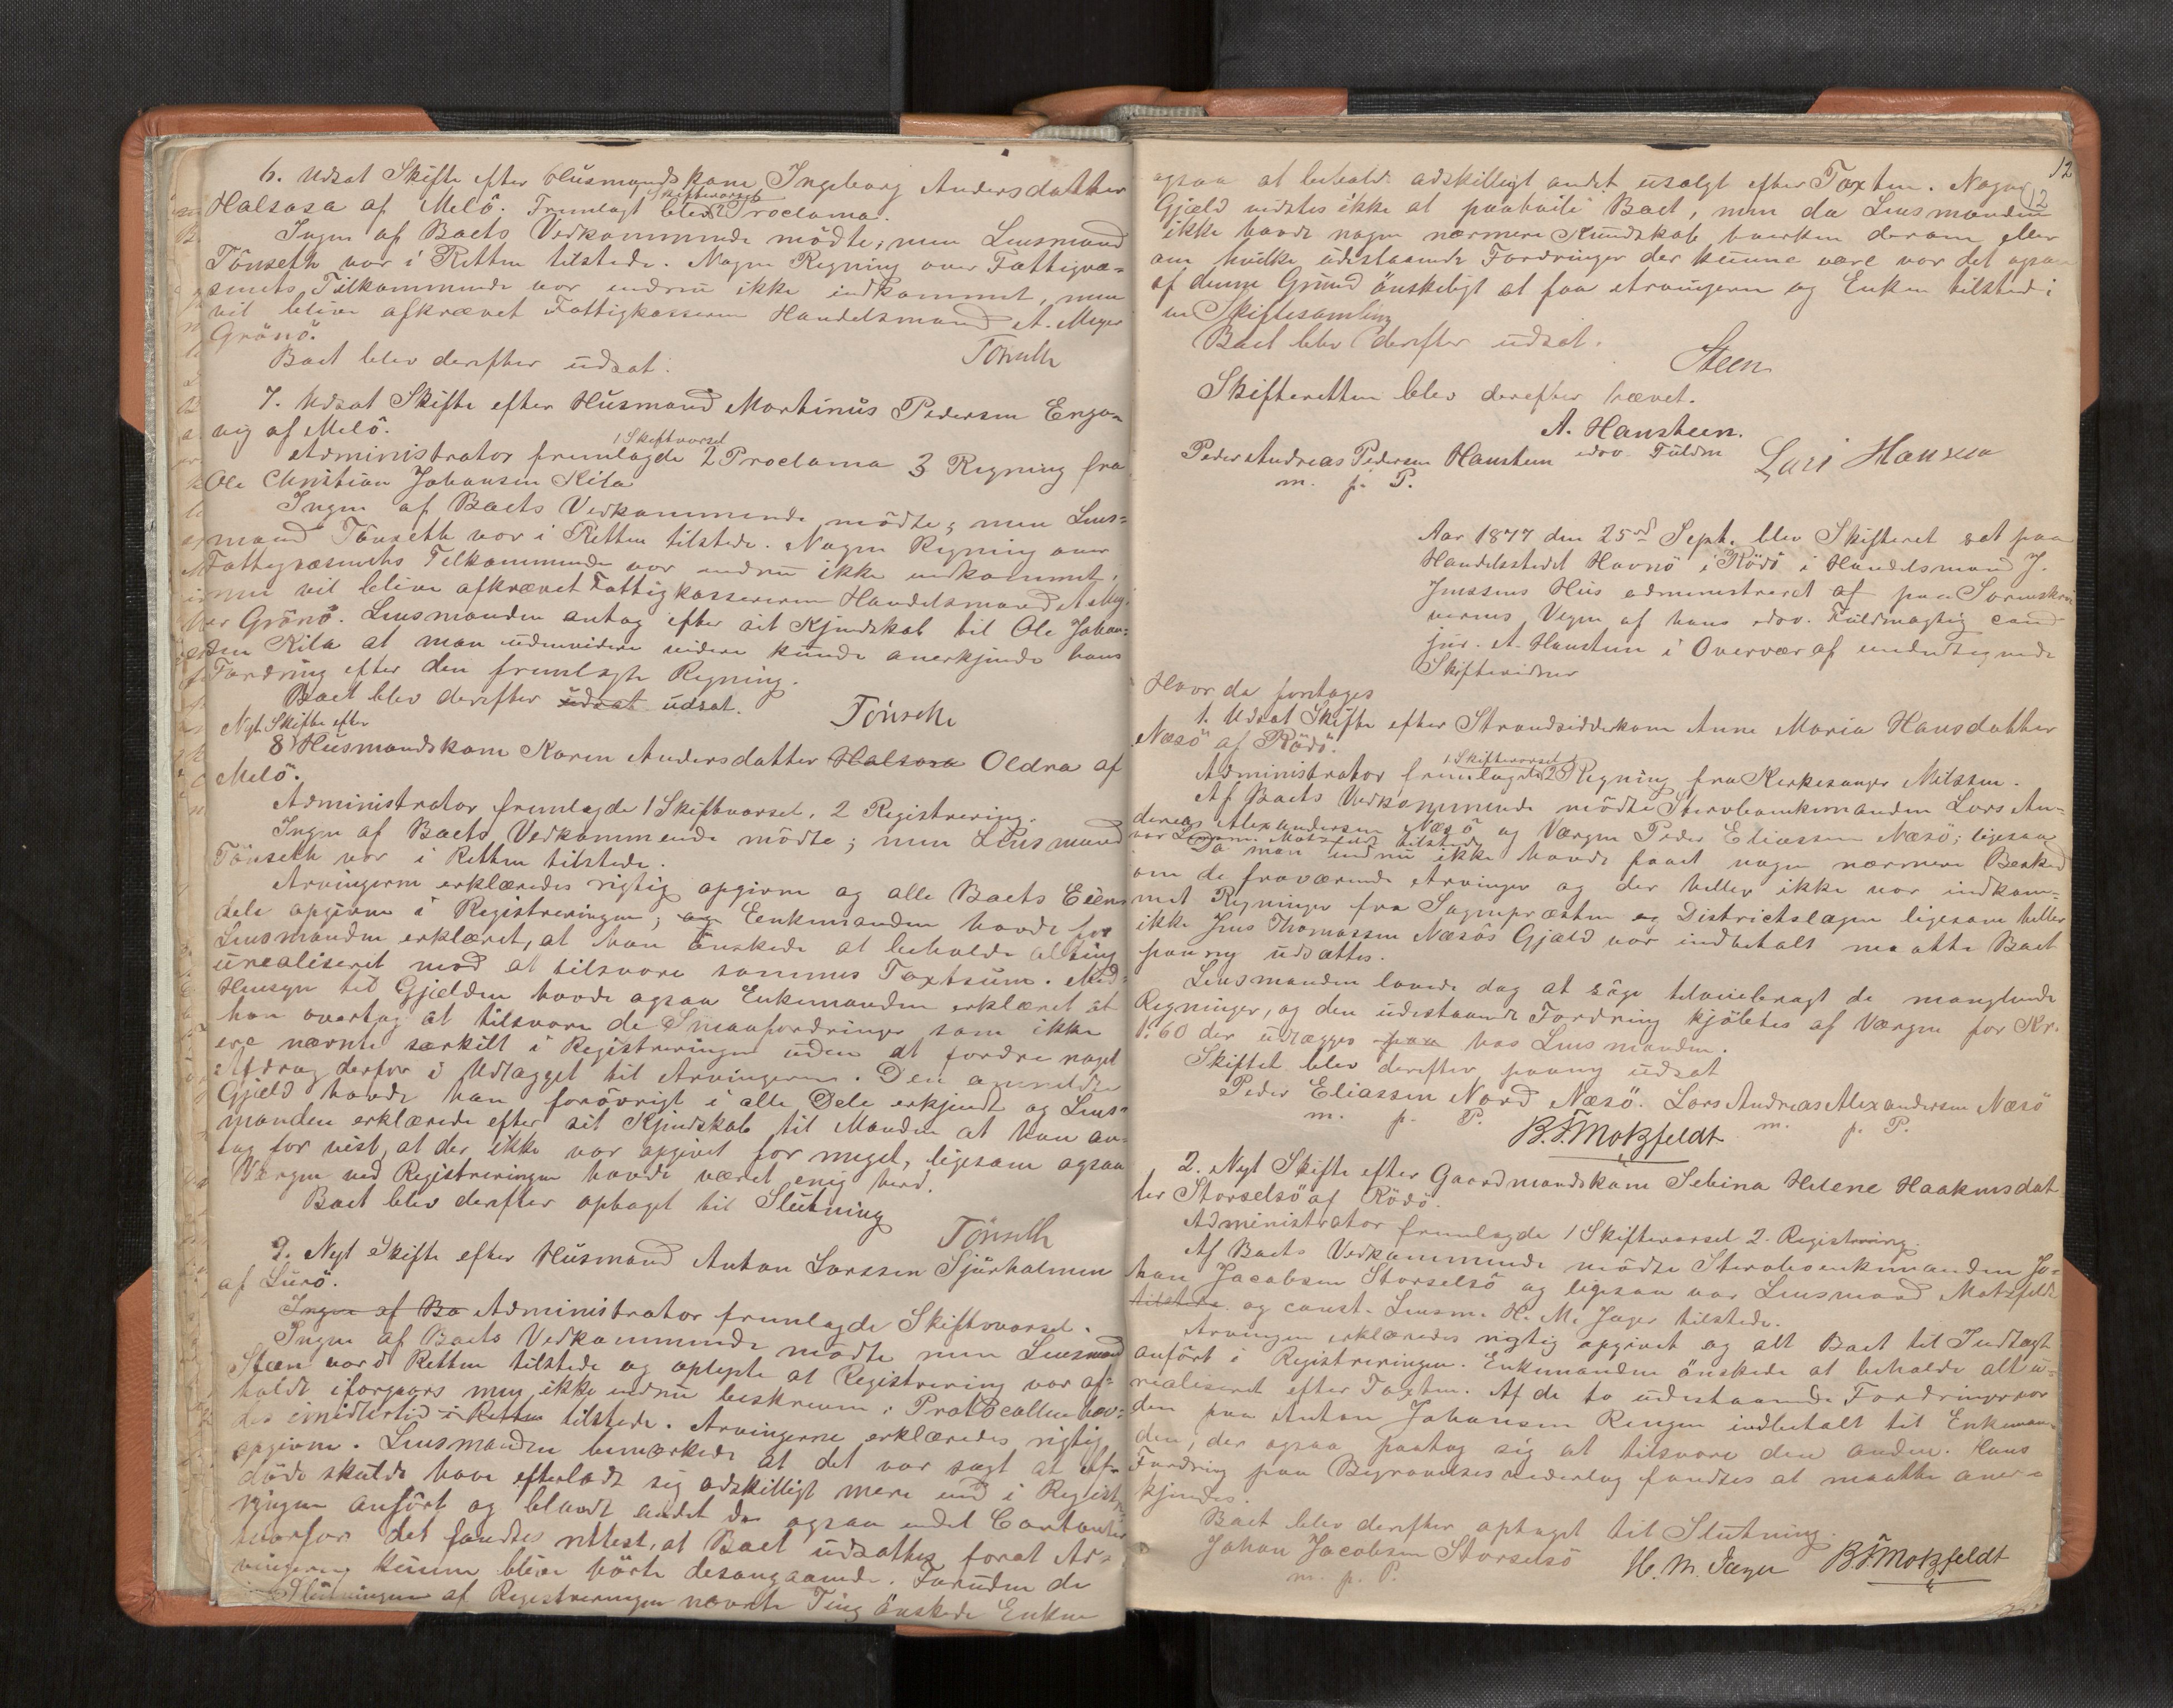 6. Udsat Skifte efter Husmandskone Ingeborg Andersdatter
Halsosa af Melö. Fremlagt blev 1 Skiftevarsel 2 Proclama.
Ingen af Boets Vedkommende mödte, men Lensmand
Tönseth var i Retten tilstede. Nogen Regning over Fattigvæ-
senets Tilkommende var endnu ikke indkommet, men
vil bliver afkrævet Fattigkasserer Handelsmand A. Meyer
Grönö.
Boet blev derefter udsat.
Tönseth
7. Udsat Skifte efter Husmand Martinus Pedersen Enga-
vig af Melö.
Administrator fremlagde 1 Skiftevarsel 2 Proclama 3 Regning fra
Ole Christian Johansen Kila
Ingen af Boets Vedkommende mödte; men Lens-
mand Tönseth var i Retten tilstede. Nogen Regning over
Fattigvæsenets Tilkommende var endnu ikke indkommet,
men vil bliver afkrævet Fattigkassereren Handelsmand A Mey-
er Grönö. Lensmanden antog efter sit Kjendskab til Ole Johan-
sen Kila at man udenvidere videre kunde anerkjende hans
Fordring efter den fremlagte Regning.
Boet blev derefter udsat udsat.
Tönseth
Nyt Skifte efter
8) Husmandskone Karen Andersdatter Halsosa Oldra af
Melö.
Administrator fremlagde 1 Skiftevarsel, 2 Registrering.
Ingen af Boets Vedkommende mödte; men Lensmand
Tönseth var i Retten tilstede.
Arvingerne erklæredes rigtig opgivne og alle Boets Eien-
dele opgivne i Registreringen; og Eenkemanden havde for
Lensmanden erklæret, at han önskede at beholde alting
urealiseret mod at tilsvare sammes Taxtsum. Med
Hensyn til Gjælden havde ogsaa Enkemanden erklæret at
han overtog at tilsvare de Smaafordringer som ikke
ere nævnte særskilt i Registreringen uden at fordre noget
Afdrag derfor i Udlægget til Arvingerne. Den anmeldte
Gjæld havde han forövrigt i alle Dele erkjendt og Lens-
manden erklærede efter sit Kjendskab til Manden at han an-
tog for vist, at der ikke var opgivet for meget, ligesom ogsaa
Værgen ved Registreringen havde været enig heri.
Boet blev derefter optaget til Slutning
Tönseth
9. Nyt Skifte efter Husmand Anton Larssen Sjurholmen
af Lurö.
Ingen af Bo Administrator fremlagde Skiftevarsel.
Ingen af Boets Vedkommende mödte men Lensmand
Steen var i Retten tilstede og oplyste at Registrering var af-
holdt iforgaars men ikke endnu beskreven; Protocollen hav-
des imidlertid i Retten tilstede. Arvingerne erklæredes rigtig
opgivne. Lensmanden bemærkede at det var sagt at Af-
döde skulde have efterladt sig adskilligt mere end i Regist-
ringen anfört og blandt andet da ogsaa endel Contanter
hvorfor det fandtes rettest, at Boet udsattes forat Ar-
vingerne kunne blive hörte desangaaende. Foruden de
i Slutningen af Registreringen nævnte Ting önskede Enken
12
12
ogsaa at beholde adskilligt andet usolgt efter Taxten. Nogen
Gjæld vidstes ikke at paahvile Boet, men da Lensmanden
ikke havde nogen nærmere Kundskab hverken derom eller
om hvilke udestaaende Fordringer der kunne være var det ogsaa
af denne Grund önskeligt at faa Arvingerne og Enken tilstede i
en Skiftesamling
Boet blev derefter udsat.
Steen
Skifteretten blev derefter hævet.
A. Hansteen.
edsv. Fuldm
Peder Andreas Pedersen Hanstein
m. p. P.
Lars Hansen
Aar 1877 den 25de Sept. blev Skifteret sat paa
Handelsstedet Havnö i Rödö i Handelsmand J.
Jenssens Hus administreret af paa Sorenskri-
verens Vegne af hans edsv. Fuldmægtig cand
jur. A. Hansteen i Overvær af undertegnede
Skiftevidner
Hvor da foretages
1. Udsat Skifte efter Strandsidderkone Anne Maria Hansdatter
Næsö af Rödö.
Administrator fremlagde 1 Skiftevarsel 2 Regning fra Kirkesanger Nilssen.
Af Boets Vedkommende mödte Stervboenkemanden Lars An-
dereas Alexandersen Næsö og Værgen Peder Eliassen Næsö; ligesaa
var Lensm Motzfeldt tilstede
Da man endnu ikke havde faaet nogen nærmere Besked
om de fraværende Arvinger og der heller ikke var indkom-
met Regninger fra Sognepræsten og Districtslægen ligesom heller
ikke Jens Thomassen Næsös Gjæld var indbetalt maatte Boet
paany udsættes.
Lensmanden lovede dog at söge tilveiebragt de manglende
Regninger, og den udestaaende Fordring kjöbtes af Værgen for Kr.
1.60 der udlægges paa hos Lensmanden.
Skiftet blev derefter paany udsat
Peder Eliassen Nord Næsö. Lars Andreas Alexandersen Næsö
m. p. P. m. p. P.
B. F Motzfeldt
2. Nyt Skifte efter Gaardmandskone Sebina Helene Haakensdat-
ter Storselsö af Rödö.
Administrator fremlagde 1 Skiftevarsel 2. Registrering.
Af Boets Vedkommende mödte Stervboenkemanden Jo-
han Jacobsen Storselsö og ligesaa var Lensmand Motzfeldt
tilstede og const. Lensm. H. M. Jæger tilstede.
Arvingen erklæredes rigtig opgivet og alt Boet til Indtægt
anfört i Registreringen. Enkemanden önskede at beholde alt u-
realiseret efter Taxten. Af de to udestaaende Fordringer var
den paa Anton Johansen Ringen indbetalt til Enkeman-
den, der ogsaa paatog sig at tilsvare den anden. Hans
Fordring paa Begravelsesvederlag fandtes at maatte aner-
kjendes.
Boet blev derefter optaget til Slutning.
Johan Jacobsen Storselsö
m. p. P.
H. M. Jæger B F Motzfeldt